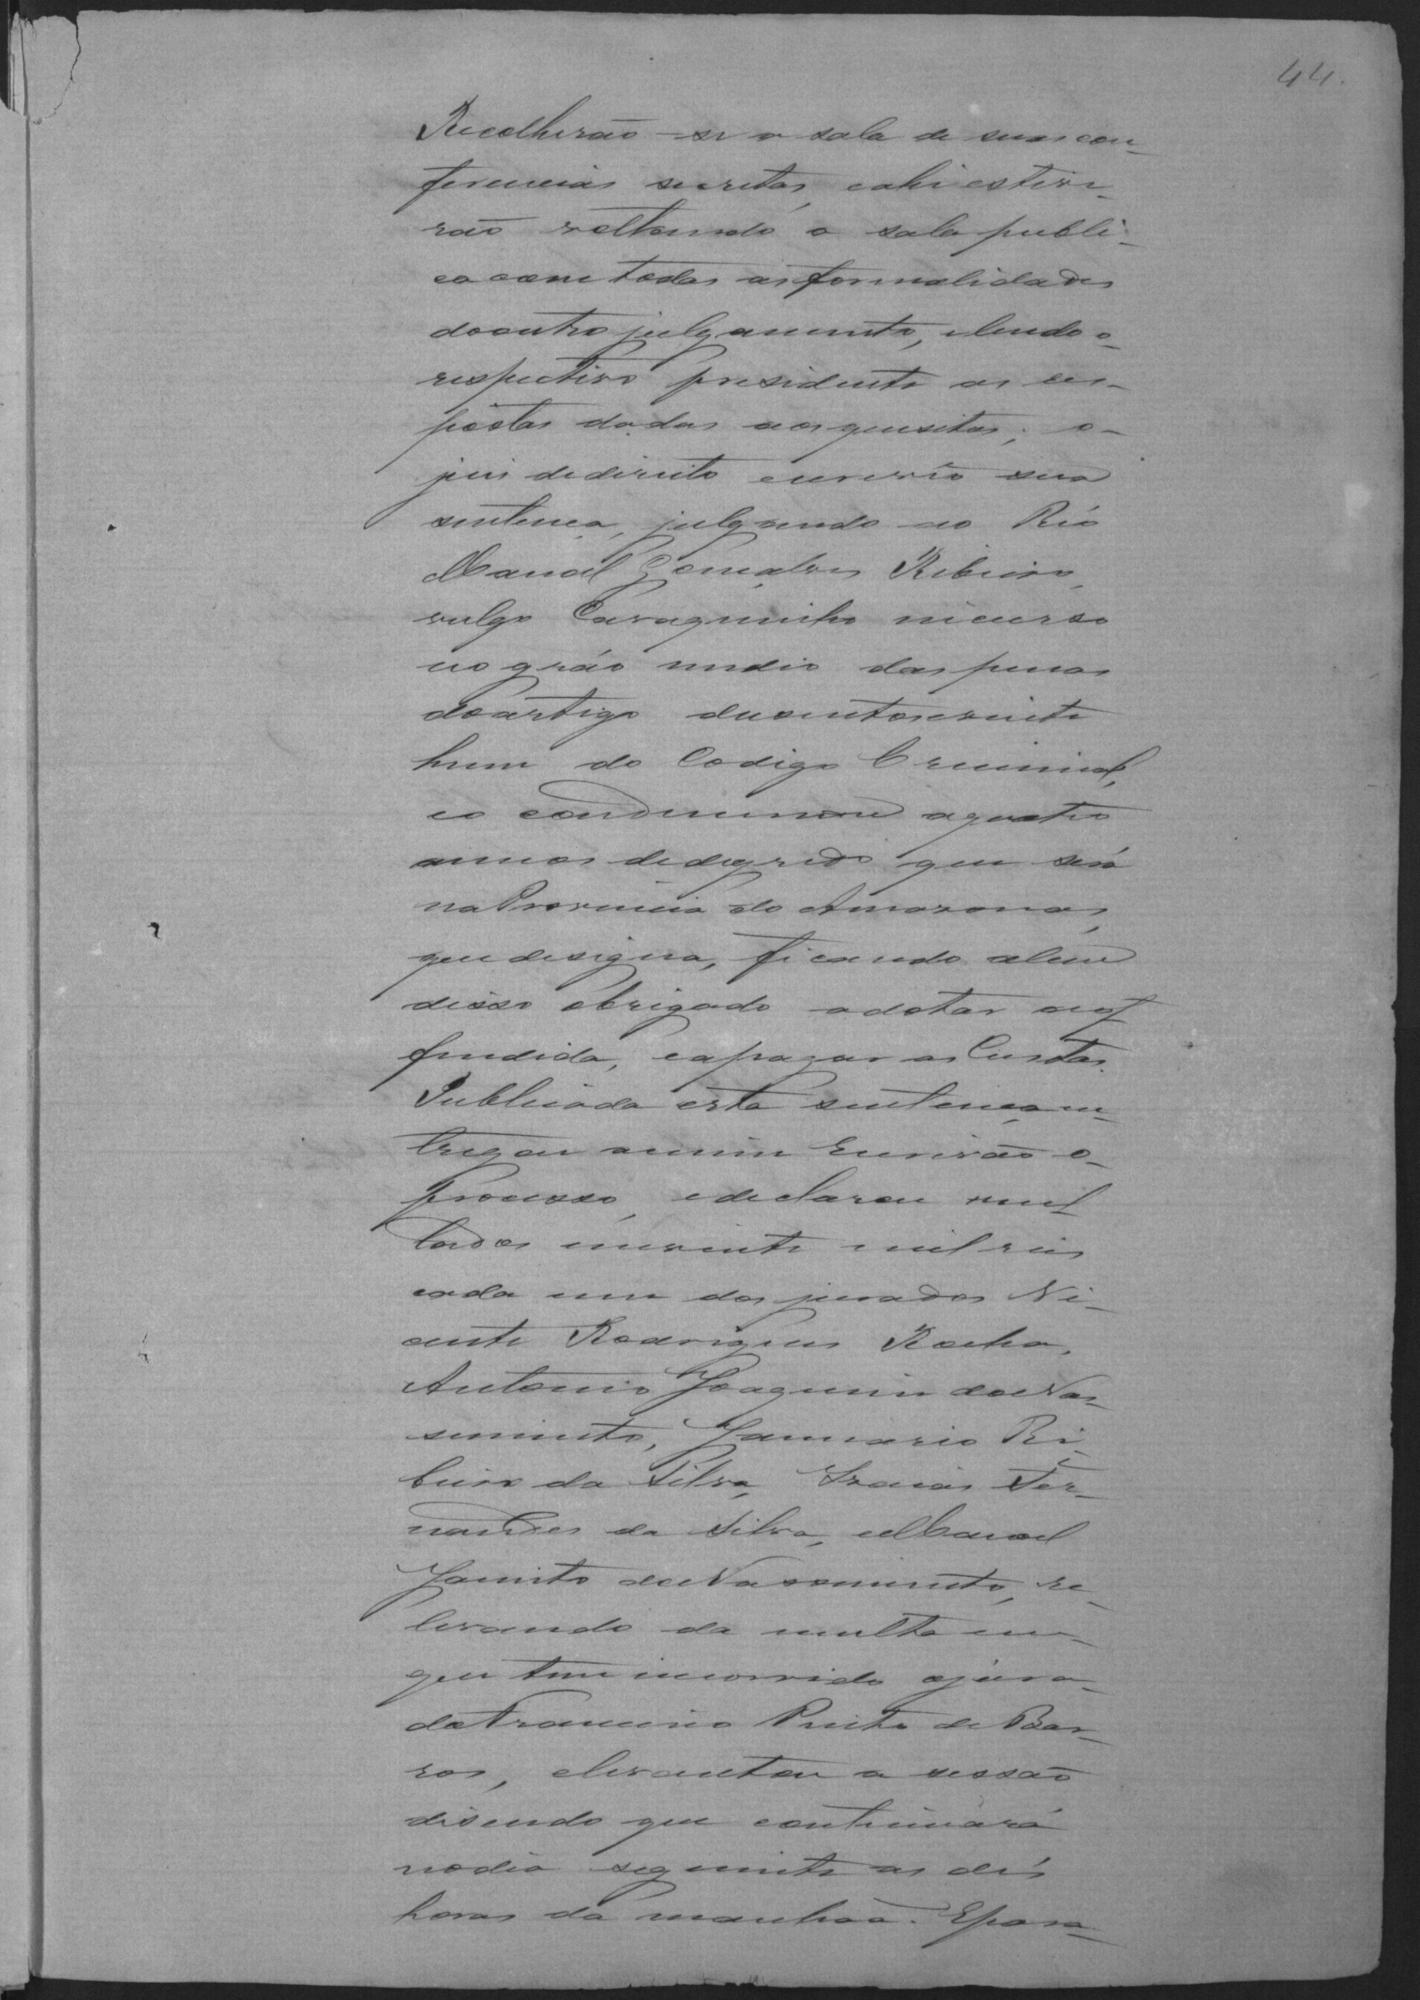 44.
Recolherão-se a sala de suas con-
ferencias secretas, e ahi estive-
rão voltando a sala publi-
ca com todas as formalidades
do outro julgamento, e lendo o
respectivo presidente as res-
póstas dadas aos quesitos; o
juis de direito escrevêo sua
sentença, julgando ao Réo
Manoel Gonçalves Ribeiro,
vulgo Cavaquinho incurso
no gráo medio das penas
do artigo dusentos e vinte
hum do Codigo Criminal,
e o condemnou a quatro
annos de degredo que será
na Provincia do Amazonas,
que designa, ficando alem
disso obrigado a dotar a of-
fendida, e a pagar as Custas.
Publicada esta sentença en-
tregou a mim Escrivão o
processo, e declarou mul-
tados em vinte mil reis
cada um dos jurados Vi-
cente Rodrigues Rocha,
Antonio Joaquim do Nas-
cimento, Januario Ri-
beiro da Silva, Izaias Fer-
nandes da Silva, e Manoel
Jacinto do Nascimento, re-
levando da multa em
que tem incorrido o jura-
do Francisco Pinto de Bar-
ros, e levantou a sessão
disendo que continuará
no dia seguinte as dés
horas da manhãa. E para